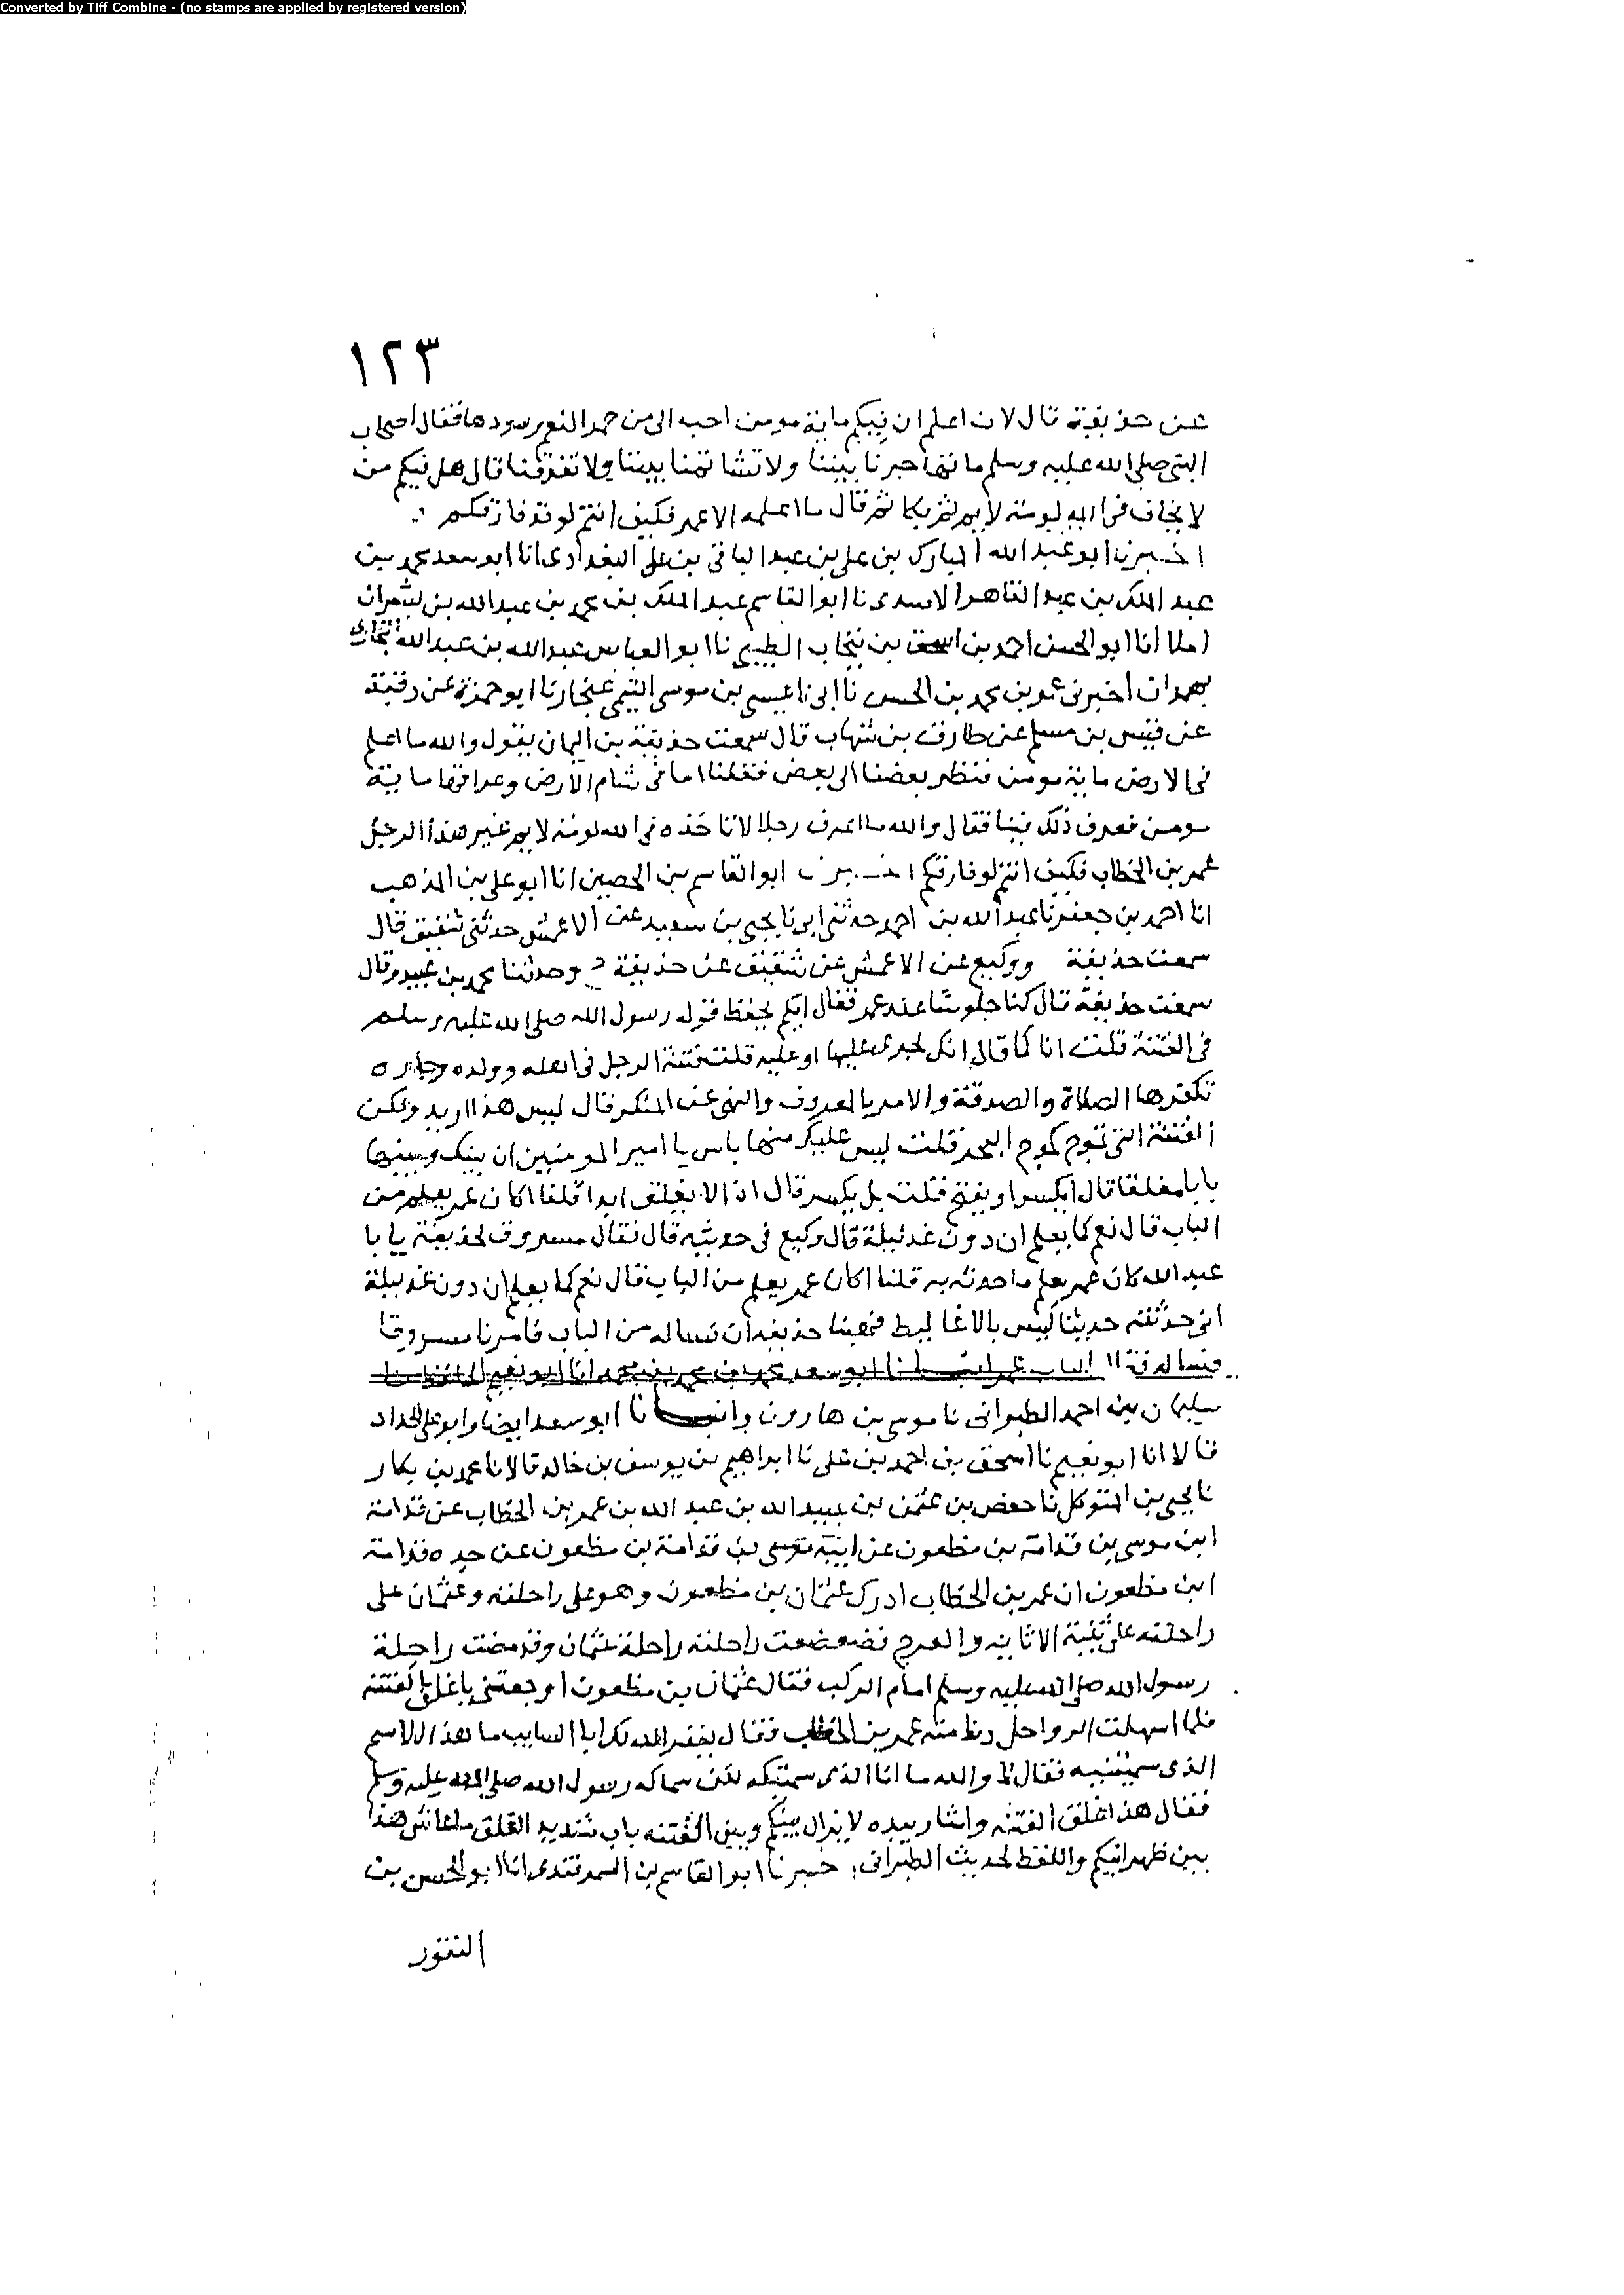 Converted by Tiff Combine - (no stamps are applied by registered version)
١٢٣
عن حذيفة قال لان اعلم ان فيكم ماية مومن احب الى من حمر النعم وسودها فقال اصحاب
النبي صلى الله عليه وسلم ما تهاجرنا بيننا ولا تشاتمنا بيننا ولا تفرقنا قال هل فيكم من
لا يخاف في الله لومة لايم ثم بكا ثم قال ما اعلمه الا عمر فكيف انتم لو قد فارقكم
اخبرنا ابو عبد الله المبارك بن علي بن عبد الباقي بن علي البغدادي انا ابو سعد محمد بن
عبد الملك بن عبد القاهر الاسدي نا ابو القاسم عبد الملك بن محمد بن عبد الله بن بشران
املا أنا ابو الحسن احمد بن اسحق بن نيخاب الطيبي نا ابو العباس عبد الله بن عبد الله البخاري
بهمدان اخبرني عمر بن محمد بن الحسن نا ابي نا عيسى بن موسى التيمي غنجار نا ابو حمزة عن رقبة
عن قيس بن مسلم عن طارق بن شهاب قال سمعت حذيفة بن اليمان يقول والله ما اعلم
في الارض ماية مومن فنظر بعضنا الى بعض فقلنا اما في شام الارض وعراقها ماية
مومن فعرف ذلك فينا فقال والله ما اعرف رجلا لا تاخذه في الله لومة لايم غير هذا الرجل
عمر بن الخطاب فكيف انتم لو فارقكم اخبرنا ابو القاسم بن الحصين انا ابو علي بن المذهب
انا احمد بن جعفر نا عبد الله بن احمد حدثني ابي نا يحيى بن سعيد عن الاعمش حدثني شقيق قال
سمعت حذيفة ووكيع عن الاعمش عن شقيق عن حذيفة ح وحدثنا محمد بن عبيد وقال
سمعت حذيفة قال كنا جلوسا عند عمر فقال ايكم يحفظ قول رسول الله صلى الله عليه وسلم
في الفتنة قلت انا كما قال انك لجرى عليها او عليه قلت فتنة الرجل في اهله وولده وجاره
تكفرها الصلاة والصدقة والامر بالمعروف والنهي عن المنكر قال ليس هذا اريد ولكن
الفتنة التي تموج كموج البحر قلت ليس عليك منها باس يا امير المومنين ان بينك وبينها
بابا مغلقا قال ايكسر او يفتح قلت بل يكسر قال اذا لا يغلق ابدا قلنا اكان عمر يعلم من
الباب قال نعم كما يعلم ان دون غد ليلة قال وكيع في حديثه قال فقال مسروق لحذيفة يا با
عبد الله كان عمر يعلم ما حدثته به قلنا اكان عمر يعلم من الباب قال نعم كما يعلم ان دون غد ليلة
اني حدثته حديثا ليس بالاغاليط فهبنا حذيفة ان نساله من الباب فامرنا مسروقا
فساله فقال الباب عمر انبانا ابو سعد محمد بن محمد بن محمد انا ابو نعيم الحافظ نا
سليمان بن احمد الطبراني نا موسى بن هارون وانبانا ابو سعد ايضا وابو علي الحداد
قالا انا ابو نعيم نا اسحق بن احمد بن علي نا ابراهيم بن يوسف بن خالد قالا نا محمد بن بكار
نا يحيى بن المتوكل نا حفص بن عثمن بن عبيد الله بن عبد الله بن عمر بن الخطاب عن قدامة
ابن موسى بن قدامة بن مظعون عن ابيه موسى بن قدامة بن مظعون عن جده قدامة
ابن مظعون ان عمر بن الخطاب ادرك عثمان بن مظعون وهو على راحلته وعثمان على
راحلته على ثنية الاثاية والعرج فضعضعت راحلته راحلة عثمان وقد مضت راحلة
رسول الله صلى الله عليه وسلم امام الركب فقال عثمان بن مظعون اوجعتني يا غلق الفتنة
فلما اسهلت الرواحل دنا منه عمر بن الخطاب فقال يغفر الله لك ابا السايب ما هذا الاسم
الذي سميتنيه فقال لا والله ما انا الذي سميتكه لكن سماكه رسول الله صلى الله عليه وسلم
فقال هذا غلق الفتنة واشار بيده لا يزال بينكم وبين الفتنه باب شديد الغلق ما عاش هذا
بين ظهرانيكم واللفظ لحديث الطبراني اخبرنا ابو القاسم بن السمرقندي انا ابو الحسن بن
النقور